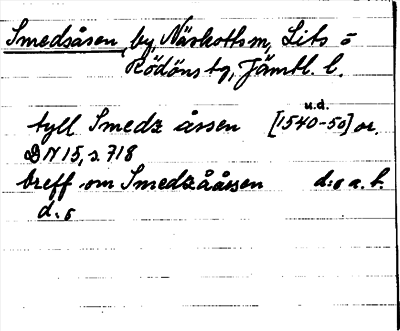 Smedsåsen, by, Näskotts sn, Lits o
Rödöns tg, Jämtl. l.
u.d.
tyll Smedz åssen [1540-50] or.
DN 15, s. 718
breff om Smedzååssen d:o a.h.
d.o